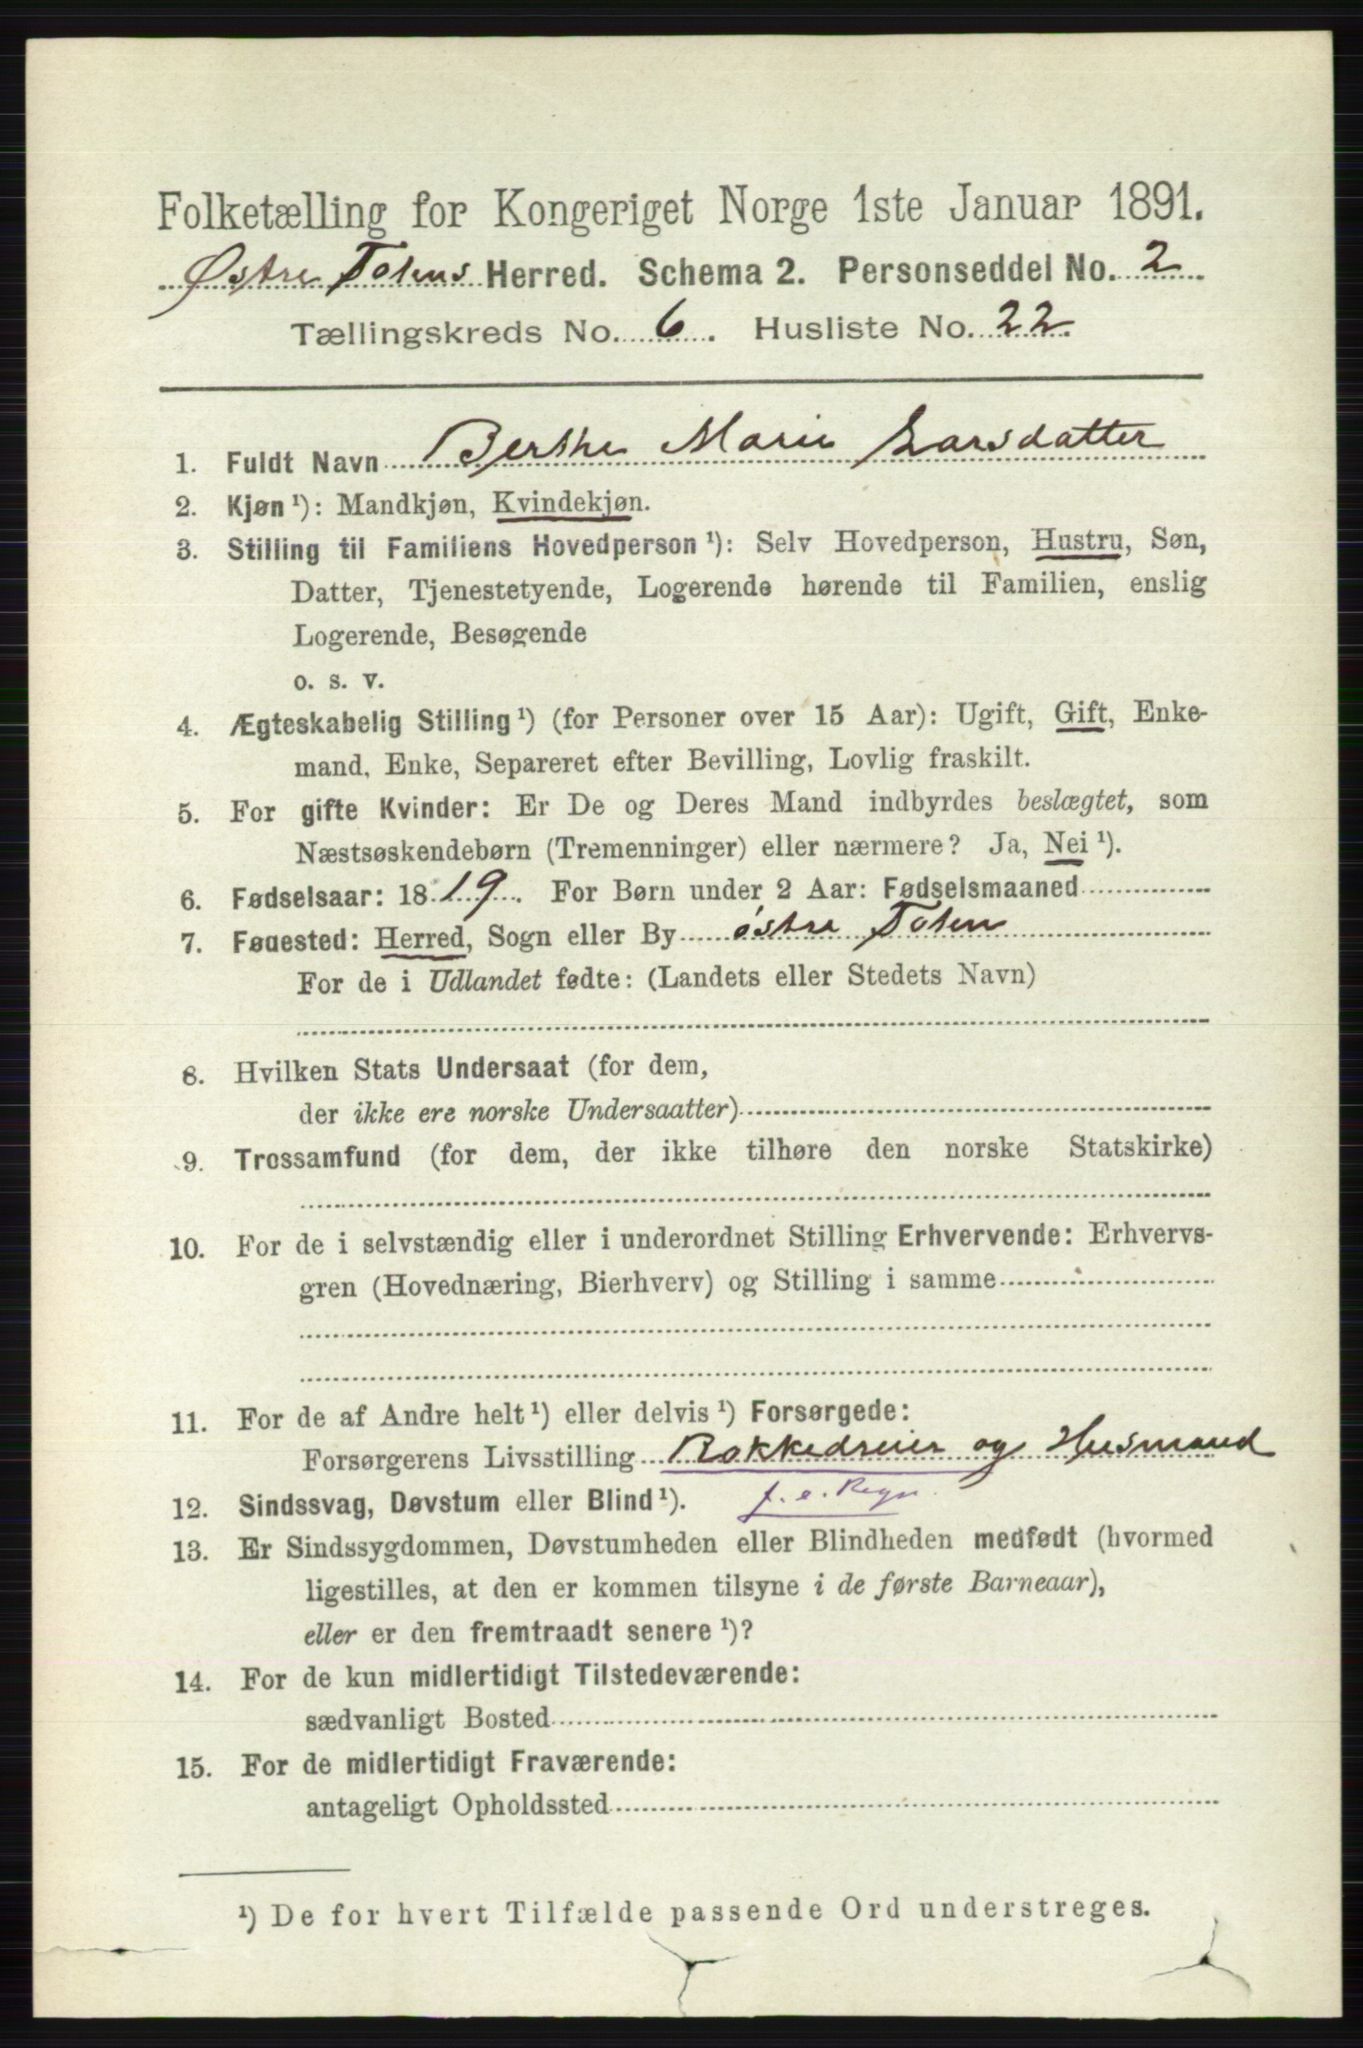 Folketælling for Kongeriget Norge 1ste Januar 1891.
Østre Totens Herred. Schema 2. Personseddel No. 2
Tællingskreds No. 6. Husliste No. 22.
1. Fuldt Navn Berthe Marie Larsdatter
2. Kjøn ¹): Mandkjøn, Kvindekjøn.
3. Stilling til Familiens Hovedperson ¹): Selv Hovedperson, Hustru, Søn,
Datter, Tjenestetyende, Logerende hørende til Familien, enslig
Logerende, Besøgende
o. s. v.
4. Ægteskabelig Stilling ¹) (for Personer over 15 Aar): Ugift, Gift, Enke-
mand, Enke, Separeret efter Bevilling, Lovlig fraskilt.
5. For gifte Kvinder: Er De og Deres Mand indbyrdes beslægtet, som
Næstsøskendebørn (Tremenninger) eller nærmere? Ja, Nei ¹).
6. Fødselsaar: 1819. For Børn under 2 Aar: Fødselsmaaned
7. Fødested: Herred, Sogn eller By østre Toten
For de i Udlandet fødte: (Landets eller Stedets Navn)
8. Hvilken Stats Undersaat (for dem,
der ikke ere norske Undersaatter)
9. Trossamfund (for dem, der ikke tilhøre den norske Statskirke)
10. For de i selvstændig eller i underordnet Stilling Erhvervende: Erhvervs-
gren (Hovednæring, Bierhverv) og Stilling i samme
11. For de af Andre helt ¹) eller delvis ¹) Forsørgede:
Forsørgerens Livsstilling Rokkedreier og Husmand
12. Sindssvag, Døvstum eller Blind ¹). f. e. Regn.
13. Er Sindssygdommen, Døvstumheden eller Blindheden medfødt (hvormed
ligestilles, at den er kommen tilsyne i de første Barneaar),
eller er den fremtraadt senere ¹)?
14. For de kun midlertidigt Tilstedeværende:
sædvanligt Bosted
15. For de midlertidigt Fraværende:
antageligt Opholdssted
¹) De for hvert Tilfælde passende Ord understreges.